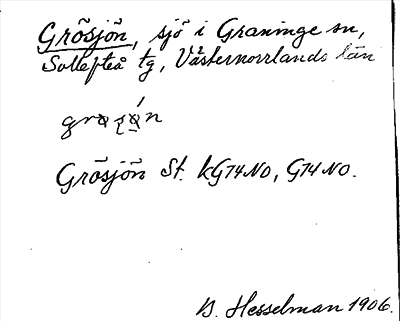 Gråsjön, sjö i Graninge sn,
Sollefteå tg, Västernorrlands län
Gråsjön St. kG74NO, G74NO.
B. Hesselman 1906.